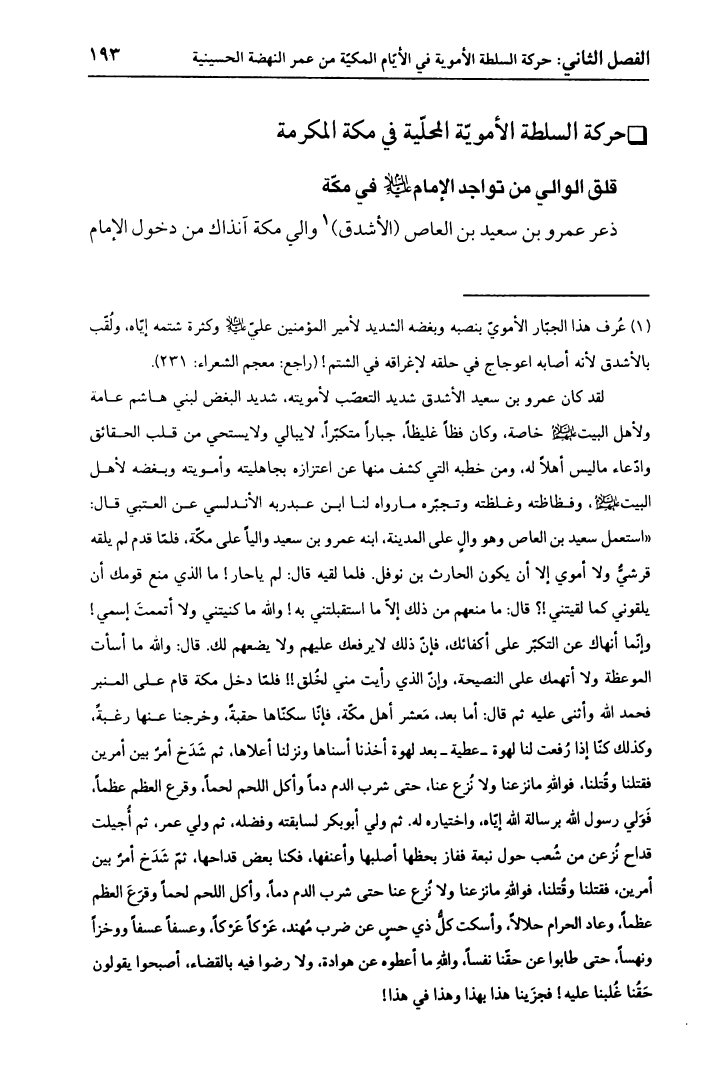 الفصل الثاني: حركة السلطة الأموية في الأيّام المكيّة من عمر النهضة الحسينية ١٩٣
❑ حركة السلطة الأمويّة المحلّية في مكة المكرمة
قلق الوالي من تواجد الإمام عليه السلام في مكّة
ذعر عمرو بن سعيد بن العاص (الأشدق)١ والي مكة آنذاك من دخول الإمام
(١) عُرف هذا الجبّار الأمويّ بنصبه وبغضه الشديد لأمير المؤمنين عليّ عليه السلام وكثرة شتمه إيّاه، ولُقّب
بالأشدق لأنه أصابه اعوجاج في حلقه لإغراقه في الشتم! (راجع: معجم الشعراء: ٢٣١).
لقد كان عمرو بن سعيد الأشدق شديد التعصّب لأمويته، شديد البغض لبني هـاشم عـامة
ولأهل البيت عليهم السلام خاصة، وكان فظاً غليظاً، جباراً متكبّراً، لايبالي ولايستحي من قـلب الحـقائق
وادّعاء ماليس أهلاً له، ومن خطبه التي كشف منها عن اعتزازه بجاهليته وأمـويته وبـغضه لأهـل
البيت عليهم السلام، وفـظاظته وغـلظته وتـجبّره مـارواه لنـا ابـن عـبدربه الأندلسي عـن العـتبي قـال:
«استعمل سعيد بن العاص وهو والٍ على المدينة، ابنه عمرو بن سعيد والياً على مكّة، فلمّا قدم لم يلقه
قرشيٌّ ولا أموي إلا أن يكون الحارث بن نوفل. فلما لقيه قال: لم ياحار! ما الذي منع قومك أن
يلقوني كما لقيتني!؟ قال: ما منعهم من ذلك إلاّ ما استقبلتني به! والله ما كنيتني ولا أتممتَ إسمي!
وإنّما أنهاك عن التكبّر على أكفائك، فإنّ ذلك لايرفعك عليهم ولا يضعهم لك. قال: والله ما أسأت
الموعظة ولا أتهمك على النصيحة، وإنّ الذي رأيت مني لخُلق!! فلمّا دخل مكة قام عـلى المـنبر
فحمد الله وأثنى عليه ثم قال: أما بعد، مَعشر أهل مكّة، فإنّا سكنّاها حقبةً، وخرجنا عـنها رغـبةً،
وكذلك كنّا إذا رُفعت لنا لهوة ـ عطية ـ بعد لهوة أخذنا أسناها ونزلنا أعلاها، ثم شَدَخ أمرٌ بين أمرين
فقتلنا وقُتلنا، فواللهِ مانزعنا ولا نُزع عنا، حتى شرب الدم دماً وأكل اللحم لحماً، وقرع العظم عظماً،
فَوَلي رسول الله برسالة الله إيّاه، واختياره له. ثم ولي أبوبكر لسابقته وفضله، ثم ولي عمر، ثم أُجيلت
قداح نُزعن من شُعب حول نبعة ففاز بحظها أصلبها وأعنفها، فكنا بعض قداحها، ثمّ شَدَخ أمرٌ بين
أمرين، فقتلنا وقُتلنا، فواللهِ مانزعنا ولا نُزع عنا حتى شرب الدم دماً، وأكل اللحم لحماً وقرَعَ العظم
عظماً، وعاد الحرام حلالاً، وأسكت كلُّ ذي حسٍ عن ضرب مُهند، عَرْكاً عَرْكاً، وعسفاً عسفاً ووخزاً
ونهساً، حتى طابوا عن حقّنا نفساً، واللهِ ما أعطوه عن هوادة، ولا رضوا فيه بالقضاء، أصبحوا يقولون
حَقُنا غُلبنا عليه! فجزَينا هذا بهذا وهذا في هذا!